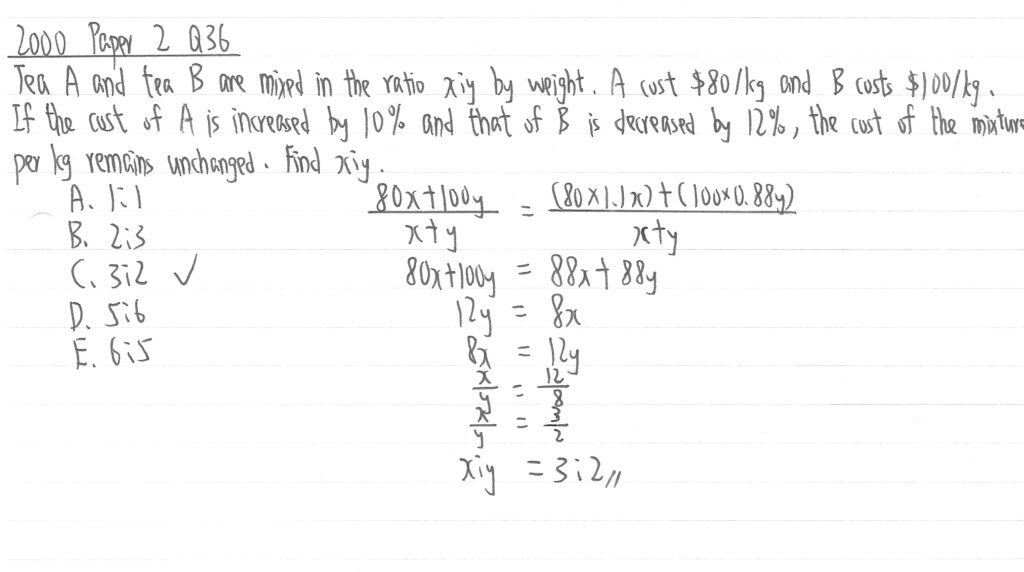 2000 Paper 2 Q36
Tea A and tea B are mixed in the ratio x:y by weight. A cost $80/kg and B costs $100/kg.
If the cost of A is increased by 10% and that of B is decreased by 12%, the cost of the mixture
per kg remains unchanged. Find x:y.
A. 1:1
B. 2:3
C. 3:2 ✓
D. 5:6
E. 6:5
(80x+100y)/(x+y) = ((80×1.1x)+(100×0.88y))/(x+y)
80x+100y = 88x+88y
12y = 8x
8x = 12y
x/y = 12/8
x/y = 3/2
x:y = 3:2//